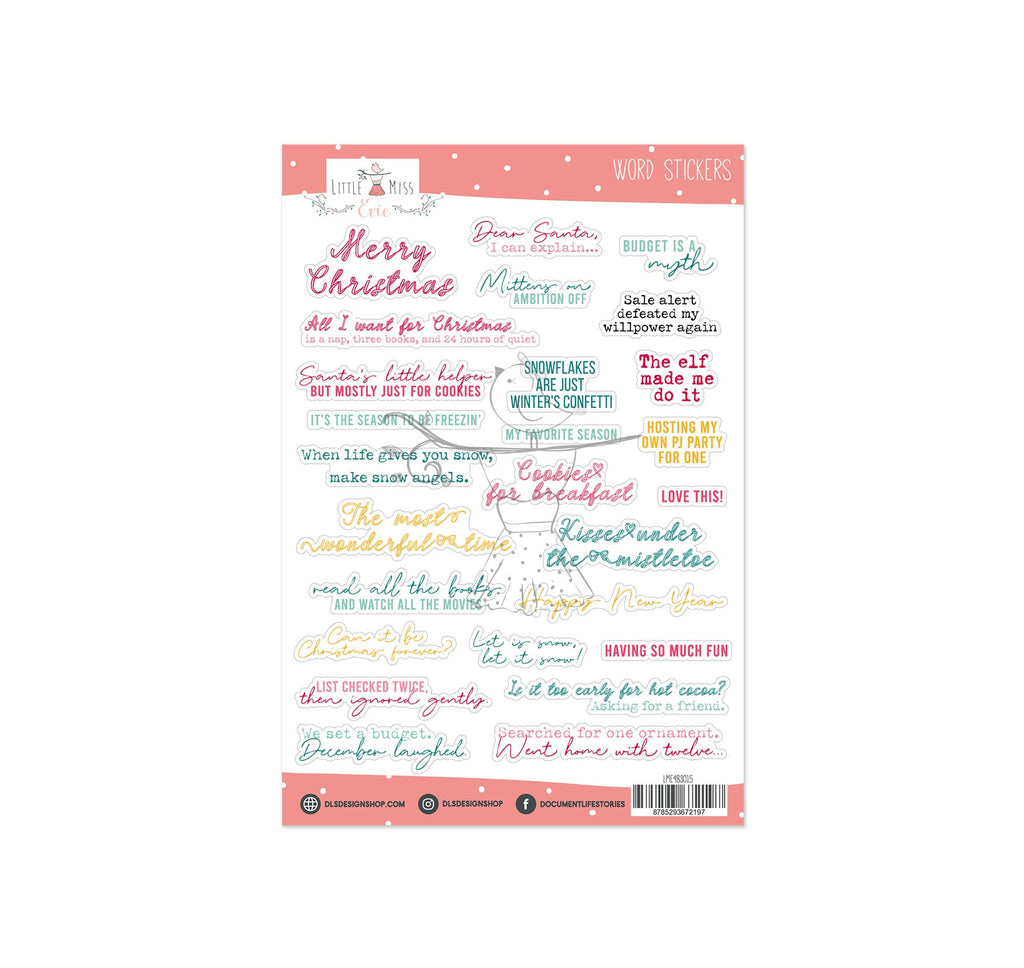 LITTLE MISS
Evie
WORD STICKERS
Merry
Christmas
Dear Santa,
I can explain...
BUDGET IS A
myth
Mittens on
AMBITION OFF
Sale alert
defeated my
willpower again
All I want for Christmas
is a nap, three books, and 24 hours of quiet
Santa's little helper
BUT MOSTLY JUST FOR COOKIES
SNOWFLAKES
ARE JUST
WINTER'S CONFETTI
The elf
made me
do it
IT'S THE SEASON TO BE FREEZIN'
MY FAVORITE SEASON
HOSTING MY
OWN PJ PARTY
FOR ONE
When life gives you snow,
make snow angels.
Cookies
for breakfast
LOVE THIS!
The most
wonderful time
Kisses under
the mistletoe
read all the books
AND WATCH ALL THE MOVIES
Happy New Year
Can it be
Christmas forever?
Let is snow,
let it snow!
HAVING SO MUCH FUN
LIST CHECKED TWICE,
then ignored gently.
Is it too early for hot cocoa?
Asking for a friend.
We set a budget.
December laughed.
Searched for one ornament.
Went home with twelve...
DLSDESIGNSHOP.COM
DLSDESIGNSHOP
DOCUMENTLIFESTORIES
LME4B3015
8785293672197